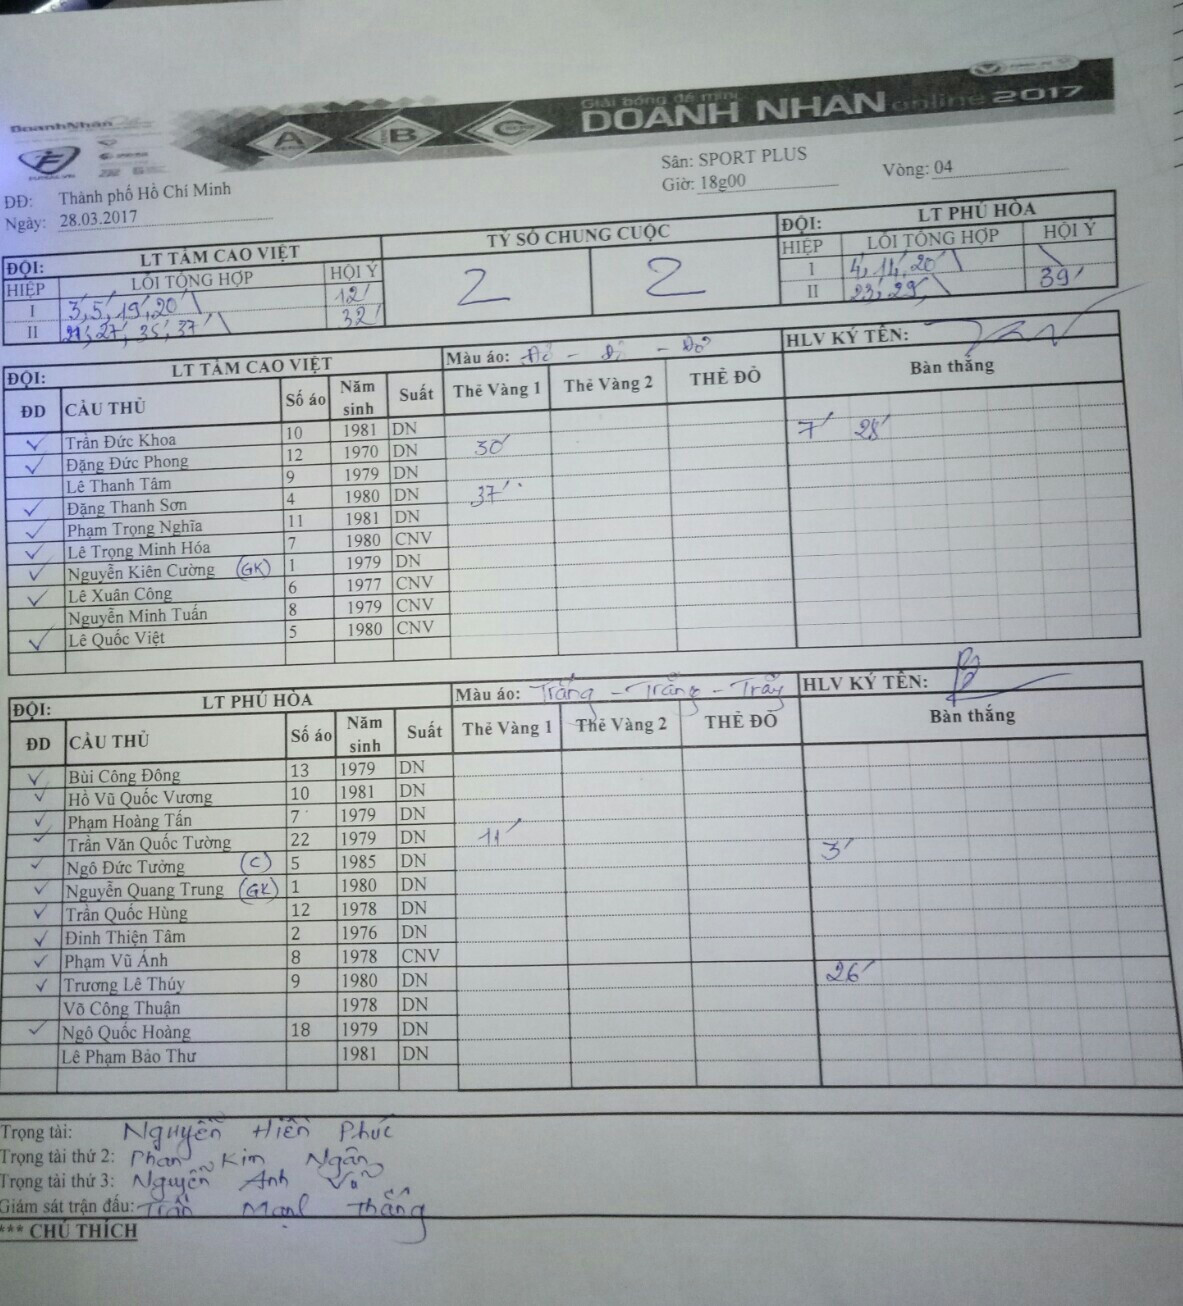 DoanhNhân
Giải bóng đá mini
DOANH NHAN online 2017
A B C
ĐĐ: Thành phố Hồ Chí Minh
Ngày: 28.03.2017
Sân: SPORT PLUS
Giờ: 18g00
Vòng: 04
ĐỘI: LT TẦM CAO VIỆT
HIỆP LỖI TỔNG HỢP HỘI Ý
I 3', 5', 19', 20' 12'
II 21', 27', 35', 37' 32'
TỶ SỐ CHUNG CUỘC
2 2
ĐỘI: LT PHÚ HÒA
HIỆP LỖI TỔNG HỢP HỘI Ý
I 4', 14', 20'
II 23', 29' 39'
ĐỘI: LT TẦM CAO VIỆT Màu áo: Đỏ - Đỏ - Đỏ HLV KÝ TÊN:
ĐD CẦU THỦ Số áo Năm sinh Suất Thẻ Vàng 1 Thẻ Vàng 2 THẺ ĐỎ Bàn thắng
✓ Trần Đức Khoa 10 1981 DN 7' 28'
✓ Đặng Đức Phong 12 1970 DN 30'
Lê Thanh Tâm 9 1979 DN
✓ Đặng Thanh Sơn 4 1980 DN 37'
✓ Phạm Trọng Nghĩa 11 1981 DN
✓ Lê Trọng Minh Hóa 7 1980 CNV
✓ Nguyễn Kiên Cường (GK) 1 1979 DN
✓ Lê Xuân Công 6 1977 CNV
Nguyễn Minh Tuấn 8 1979 CNV
✓ Lê Quốc Việt 5 1980 CNV
ĐỘI: LT PHÚ HÒA Màu áo: Trắng - Trắng - Trắng HLV KÝ TÊN:
ĐD CẦU THỦ Số áo Năm sinh Suất Thẻ Vàng 1 Thẻ Vàng 2 THẺ ĐỎ Bàn thắng
✓ Bùi Công Đông 13 1979 DN
✓ Hồ Vũ Quốc Vương 10 1981 DN
✓ Phạm Hoàng Tấn 7 1979 DN
✓ Trần Văn Quốc Tường 22 1979 DN 11'
✓ Ngô Đức Tưởng (C) 5 1985 DN 3'
✓ Nguyễn Quang Trung (GK) 1 1980 DN
✓ Trần Quốc Hùng 12 1978 DN
✓ Đinh Thiện Tâm 2 1976 DN
✓ Phạm Vũ Ánh 8 1978 CNV
✓ Trương Lê Thúy 9 1980 DN 26'
Võ Công Thuận 1978 DN
✓ Ngô Quốc Hoàng 18 1979 DN
Lê Phạm Bảo Thư 1981 DN
Trọng tài: Nguyễn Hiền Phúc
Trọng tài thứ 2: Phan Kim Ngân
Trọng tài thứ 3: Nguyễn Anh Vũ
Giám sát trận đấu: Trần Mạnh Thắng
*** CHÚ THÍCH